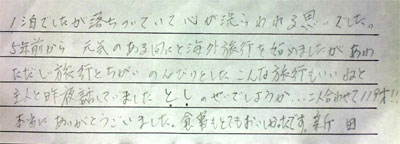 1泊でしたが落ちついていて心が洗われる思いでした。
5年前から 元気のある内にと海外旅行を始めましたが あわ
ただしい旅行とちがい のんびりとした こんな旅行もいいねと
主人と昨夜話していました とし のせいでしょうか… 二人合わせて119才!!
本当に ありがとうございました。食事もとてもおいしかったです。新 田